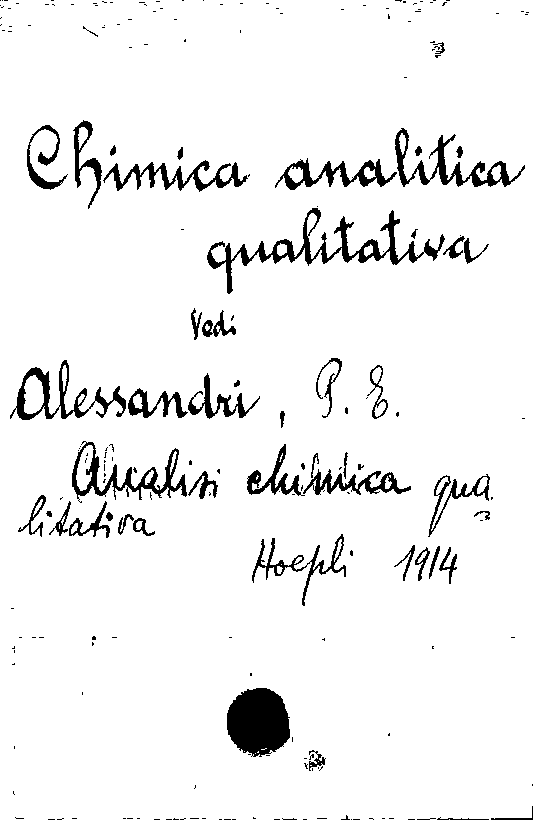 Chimica analitica
qualitativa
Vedi
Alessandri, P. E.
Analisi chimica qua
litativa
Hoepli 1914